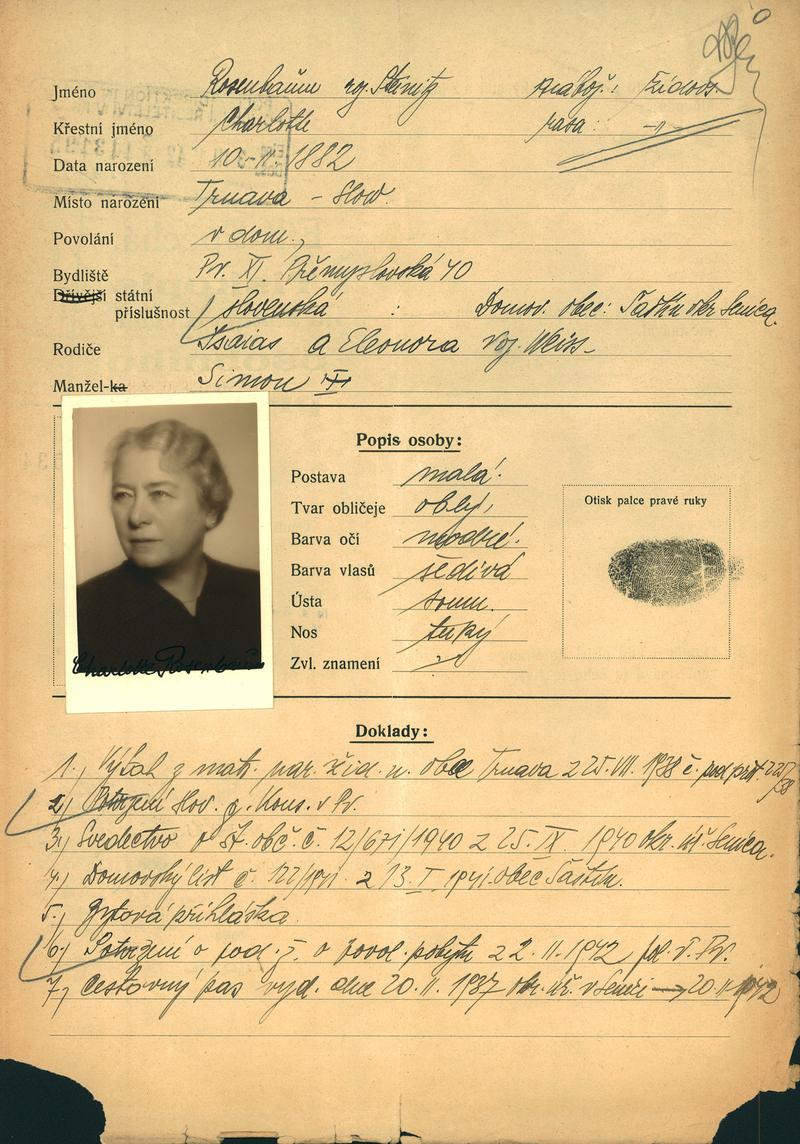 Jméno Rosenbaum roz. Steinitz nábož.: židov.
Křestní jméno Charlotte rasa: -"-
Data narození 10-II-1882
Místo narození Trnava - Slov.
Povolání v dom.,
Bydliště Pr. XI, Přemyslovská 40
Dřívější státní
příslušnost slovenská : Domov. obec: Šaštín okr. Senica.
Rodiče Isaias a Eleonora roz. Weiss
Manžel-ka Simon
Popis osoby:
Postava malá.
Tvar obličeje oblý,
Otisk palce pravé ruky
Barva očí modré.
Barva vlasů šedivá
Ústa soum.
Nos
Zvl. znamení
Charlotte Rosenbaum
Doklady:
1., Výtah z matr. nar. žid. n. obce Trnava z 25. VII. 1938 č.
2., Potvrzení slov. g. Kons. v Pr.
3., Svedectvo o št. obč. č. 12/671/1940 z 25. IX. 1940 okr. úř. Senica.
4., Domovský list č. z 13. I. 1941. obec Šaštín.
5., Bytová přihláška
6., Potvrzení o pod. ž. o povol. pobytu z 2. II. 1942 pol. ř. Pr.
7., Cestovný pas vyd. dne 20. II. 1937 okr. úř. v Senici 20. II 1942